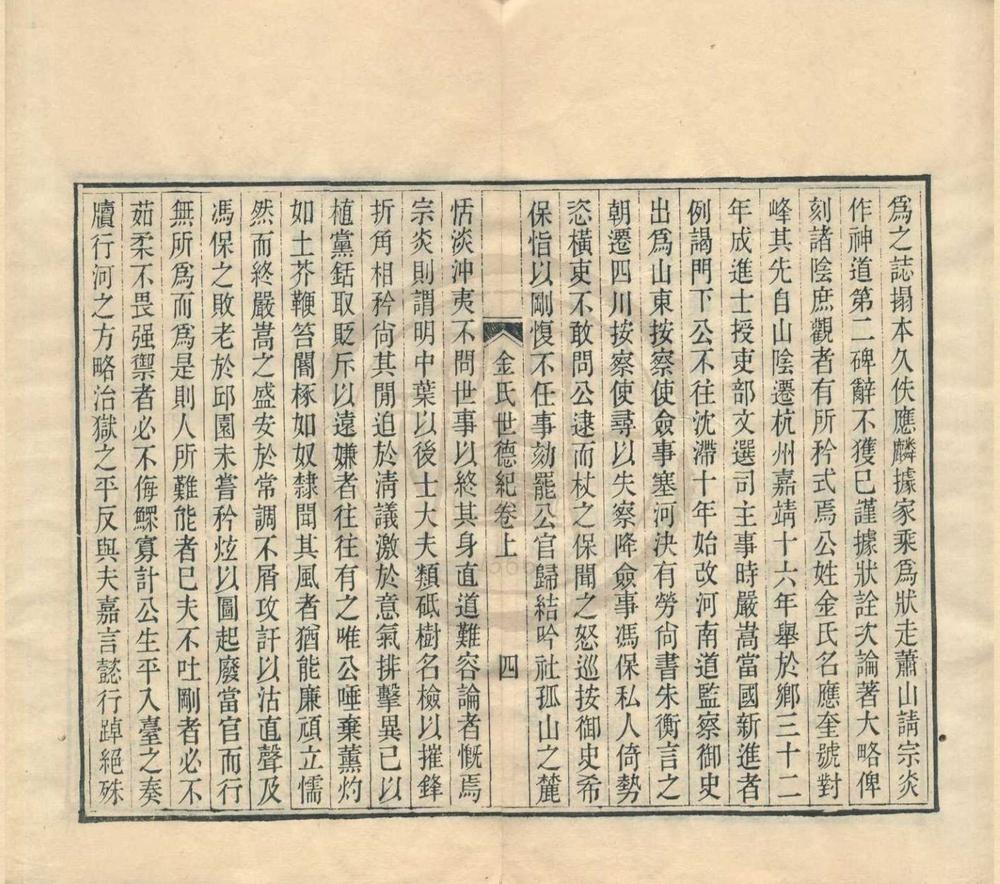 爲之誌搨本久佚應麟據家乘爲狀走蕭山請宗炎
作神道第二碑辭不獲已謹據狀詮次論著大略俾
刻諸陰庶觀者有所矜式焉公姓金氏名應奎號對
峰其先自山陰遷杭州嘉靖十六年舉於鄉三十二
年成進士授吏部文選司主事時嚴嵩當國新進者
例謁門下公不往沈滯十年始改河南道監察御史
出爲山東按察使僉事塞河決有勞尚書朱衡言之
朝遷四川按察使尋以失察降僉事馮保私人倚勢
恣橫吏不敢問公逮而杖之保聞之怒巡按御史希
保恉以剛愎不任事劾罷公官歸結吟社孤山之麓
金氏世德紀卷上 四
恬淡沖夷不問世事以終其身直道難容論者慨焉
宗炎則謂明中葉以後士大夫類砥樹名檢以摧鋒
折角相矜尚其閒迫於淸議激於意氣排擊異己以
植黨銛取貶斥以遠嫌者往往有之唯公唾棄薰灼
如土芥鞭笞閹椓如奴隸聞其風者猶能廉頑立懦
然而終嚴嵩之盛安於常調不屑攻訐以沽直聲及
馮保之敗老於邱園未嘗矜炫以圖起廢當官而行
無所爲而爲是則人所難能者已夫不吐剛者必不
茹柔不畏强禦者必不侮鰥寡計公生平入臺之奏
牘行河之方略治獄之平反與夫嘉言懿行踔絕殊